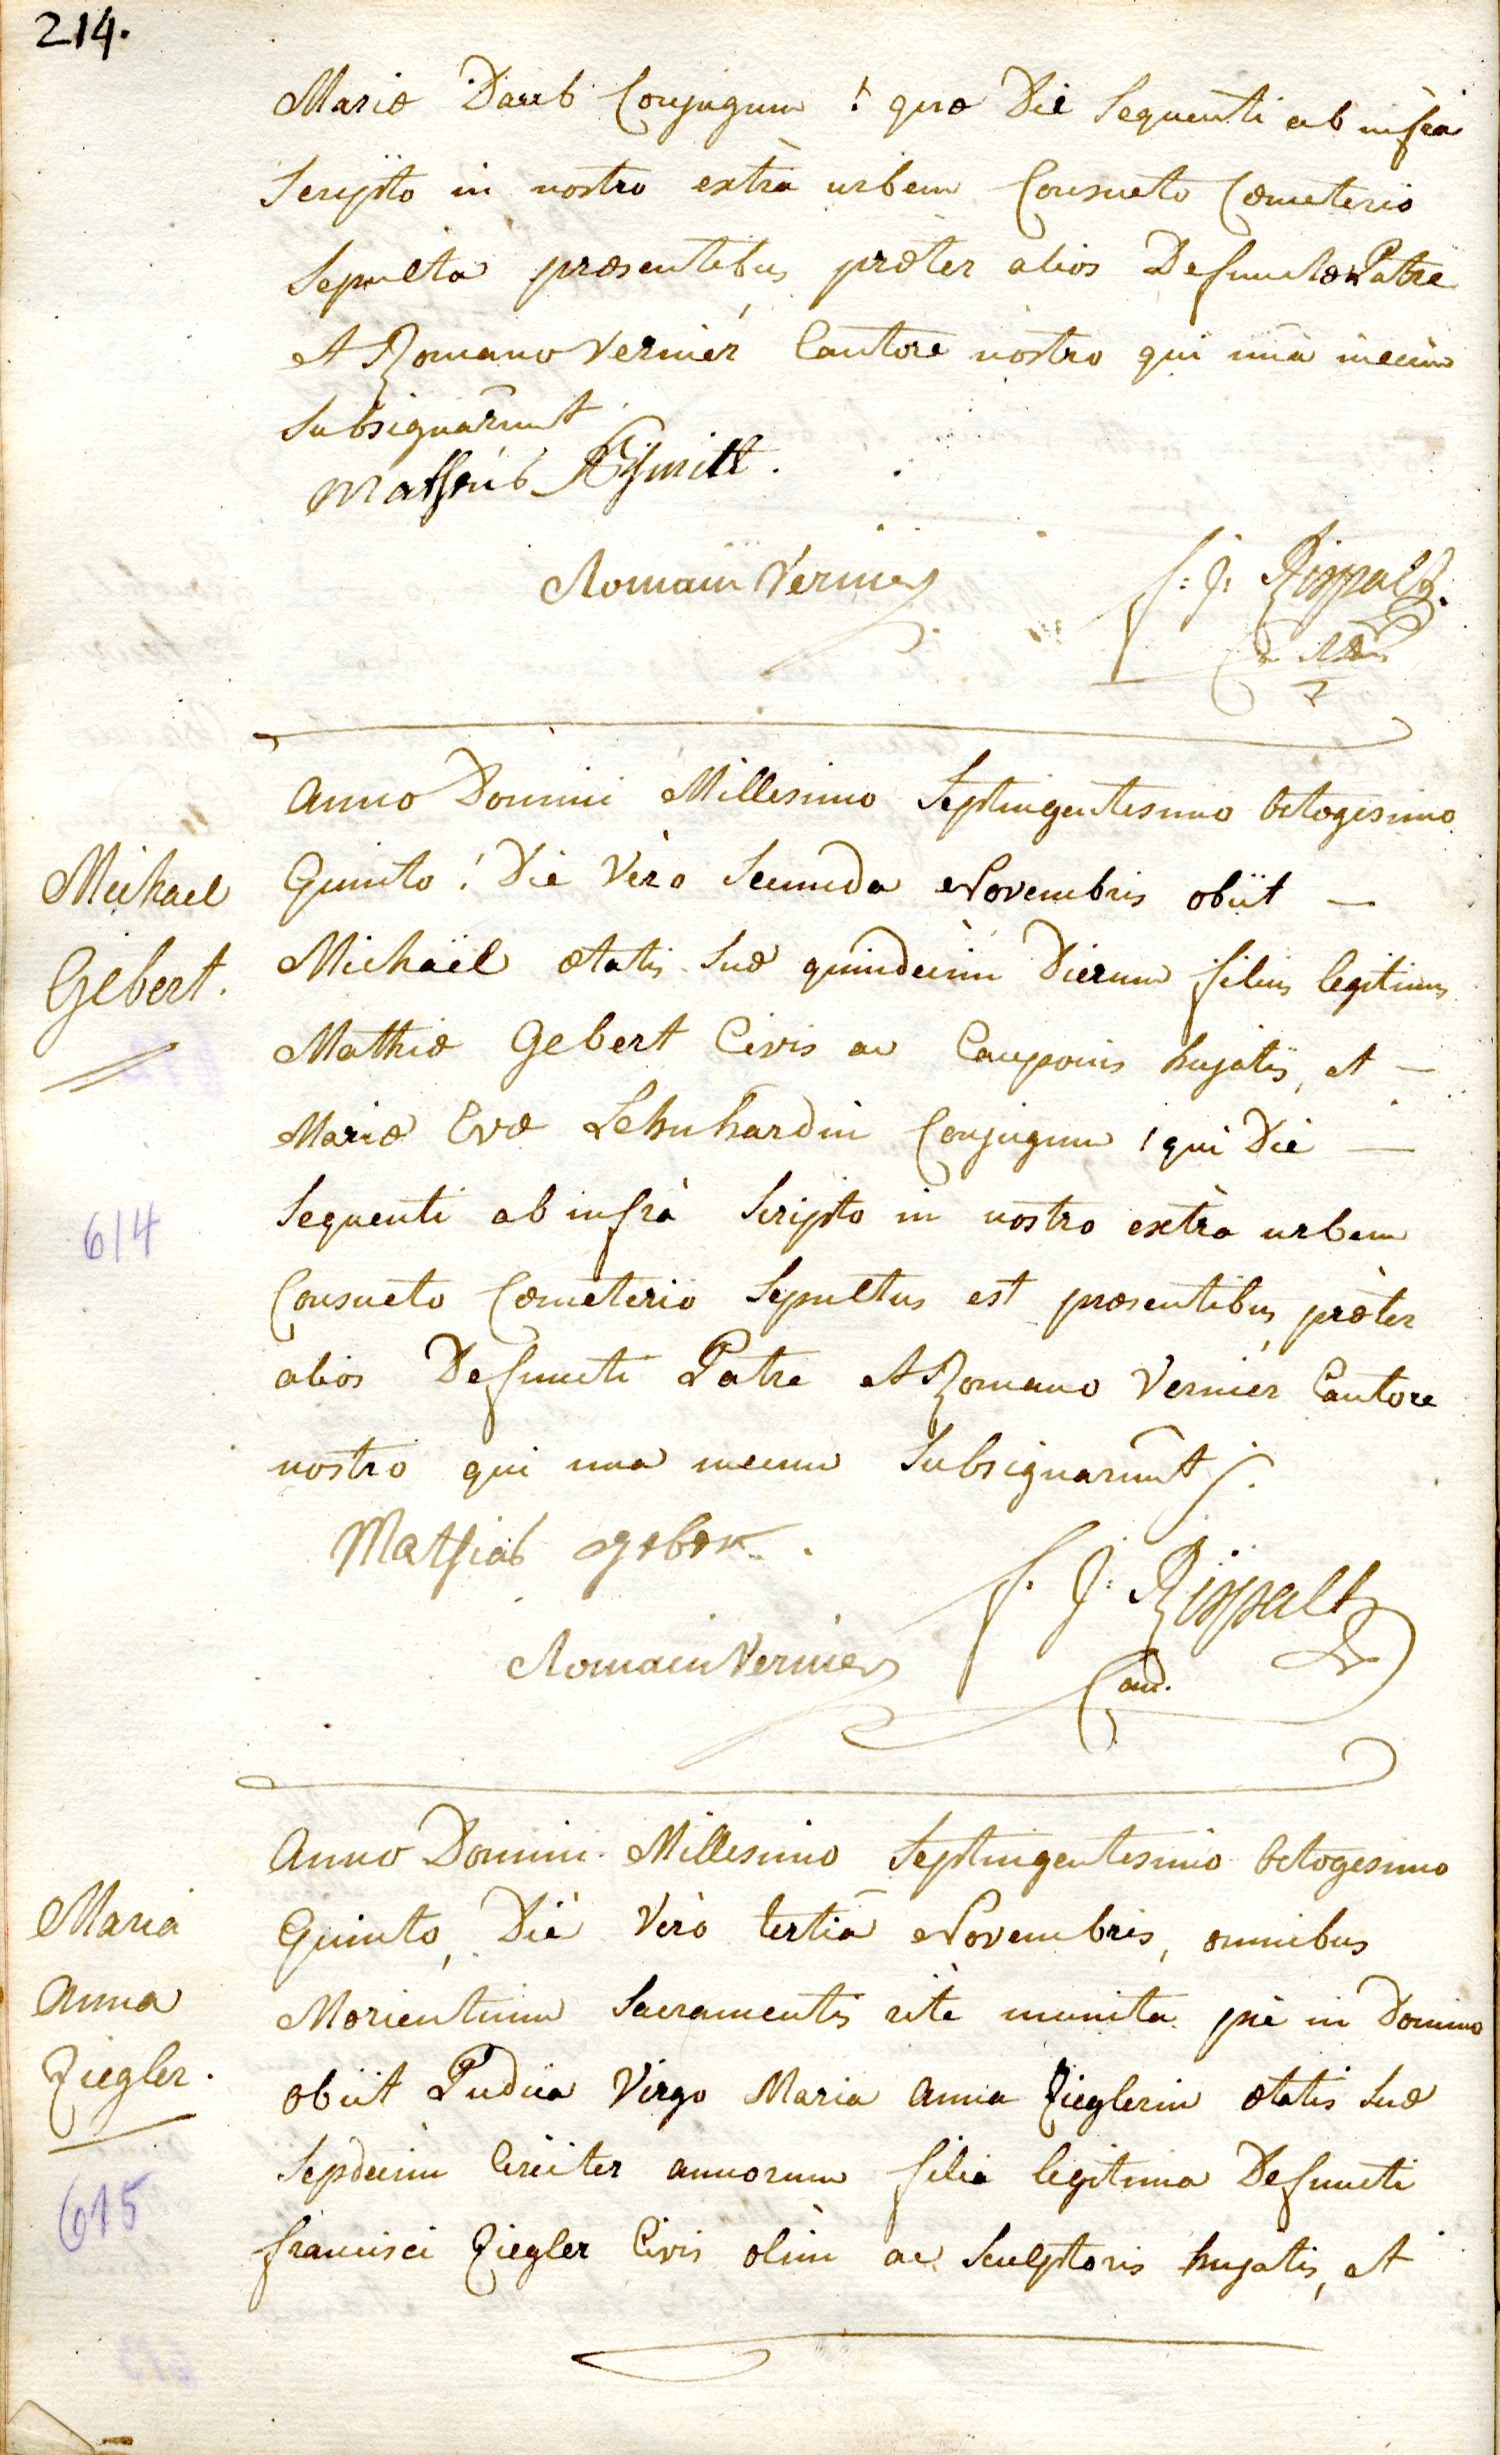 214.
Mariæ Daub Conjugum ! quæ Die Sequenti ab infrà
Scripto in nostro extrà urbem Consueto Cæmeterio
Sepulta præsentibus præter alios Defunctæ Patre
et Romano Vernier Cantore nostro qui unà mecum
Subsignarunt
Romain Vernier
f: J: Rippalt
Anno Domini Millesimo Septingentesimo Octogesimo
Michael
Gebert.
Quinto ! Die Verò Secunda Novembris obiit —
Michaël ætatis Suæ quindecim Dierum filius legitimus
Mathiæ Gebert Civis ac Cauponis hujatis, et —
Mariæ Evæ Lehnhardin Conjugum ! qui Die —
614
Sequenti ab infrà Scripto in nostro extrà urbem
Consueto Cæmeterio Sepultus est præsentibus præter
alios Defuncti Patre et Romano Vernier Cantore
nostro qui una mecum Subsignarunt
Mathias geber
f. J: Rippalt
Romain Vernier
Can.
Anno Domini Millesimo Septingentesimo Octogesimo
Maria
Anna
Ziegler.
Quinto, Die Verò tertiâ Novembris, omnibus
Morientium Sacramentis ritè munita piè in Domino
obiit Pudica Virgo Maria Anna Zieglerin ætatis Suæ
615
Sepdecim Circiter annorum filia legitima Defuncti
francisci Ziegler Civis olim ac Sculptoris hujatis, et